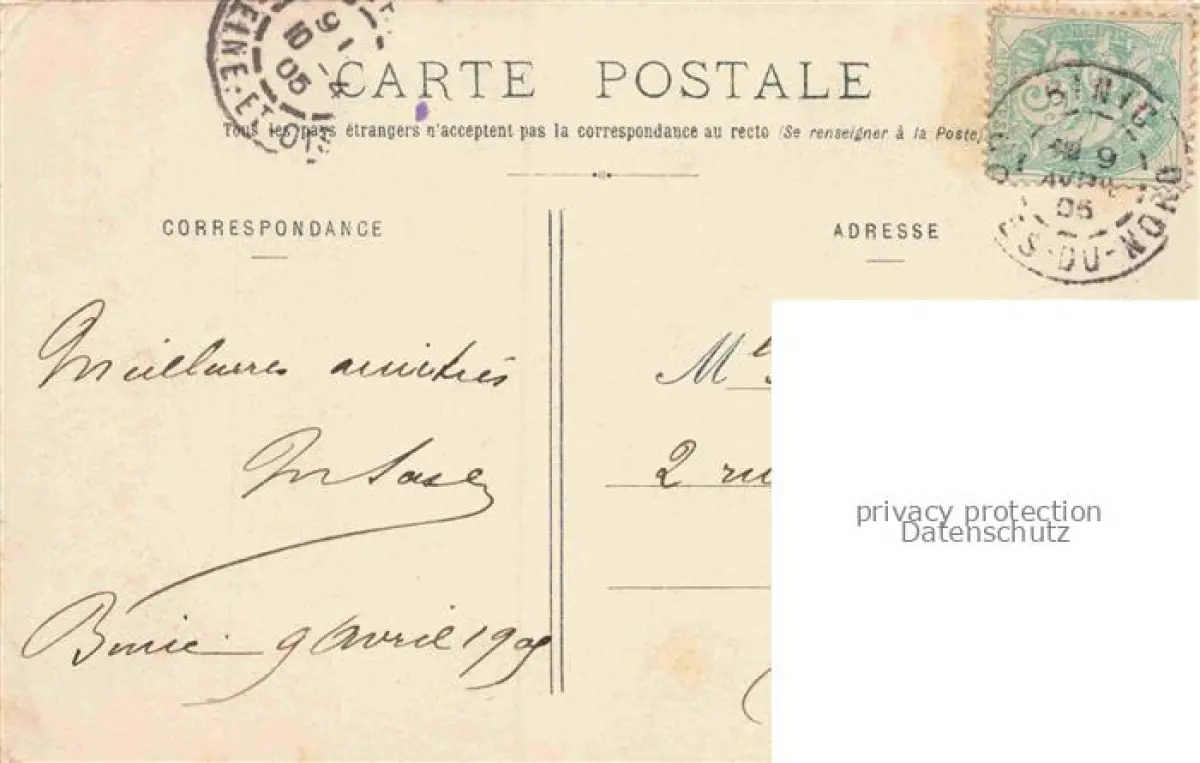 SEINE-ET-OISE
9 1
10 -4
05
CARTE POSTALE
Tous les pays étrangers n'acceptent pas la correspondance au recto (Se renseigner à la Poste)
BINIC
9
AVRIL
05
CÔTES-DU-NORD
CORRESPONDANCE
ADRESSE
Meilleures amitiés
Binic 9 Avril 1905
Mle
2 ru
privacy protection
Datenschutz